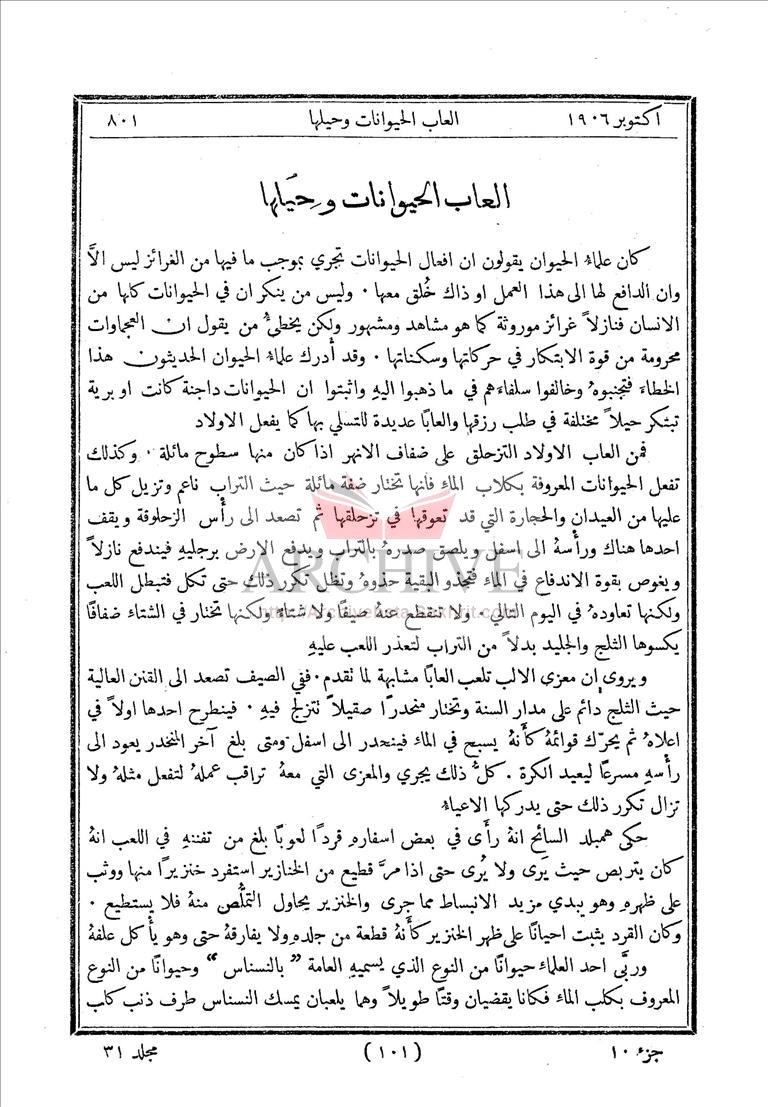 اكتوبر ١٩٠٦ العاب الحيوانات وحيلها ٨٠١
العاب الحيوانات وحيلها
كان علماءُ الحيوان يقولون ان افعال الحيوانات تجري بموجب ما فيها من الغرائز ليس الاَّ
وان الدافع لها الى هذا العمل او ذاك خُلق معها ٠ وليس من ينكر ان في الحيوانات كلها من
الانسان فنازلاً غرائز موروثة كما هو مشاهد ومشهور ولكن يخطىُّ من يقول ان العجماوات
محرومة من قوة الابتكار في حركاتها وسكناتها ٠ وقد أدرك علماءُ الحيوان الحديثون هذا
الخطاءَ فتجنبوهُ وخالفوا سلفاءَهم في ما ذهبوا اليهِ واثبتوا ان الحيوانات داجنة كانت او برية
تبتكر حيلاً مختلفة في طلب رزقها والعابًا عديدة للتسلي بها كما يفعل الاولاد
فمن العاب الاولاد التزحلق على ضفاف الانهر اذا كان منها سطوح مائلة ٠ وكذلك
تفعل الحيوانات المعروفة بكلاب الماء فانها تختار ضفة مائلة حيث التراب ناعم وتزيل كل ما
عليها من العيدان والحجارة التي قد تعوقها في تزحلقها ثم تصعد الى رأْس الزحلوقة ويقف
احدها هناك ورأْسهُ الى اسفل ويلصق صدرهُ بالتراب ويدفع الارض برجليهِ فيندفع نازلاً
ويغوص بقوة الاندفاع في الماء فتحذو البقية حذوهُ وتظل تكرر ذلك حتى تكل فتبطل اللعب
ولكنها تعاودهُ في اليوم التالي ٠ ولا تنقطع عنهُ صيفًا ولا شتاءً ولكنها تختار في الشتاء ضفافًا
يكسوها الثلج والجليد بدلاً من التراب لتعذر اللعب عليهِ
ويروى ان معزى الالب تلعب العابًا مشابهة لما تقدم ٠ ففي الصيف تصعد الى القنن العالية
حيث الثلج دائم على مدار السنة وتختار منحدرًا صقيلاً تتزلج فيهِ ٠ فينطرح احدها اولاً في
اعلاهُ ثم يحرّك قوائمهُ كأَنهُ يسبح في الماء فينحدر الى اسفل ومتى بلغ آخر المنحدر يعود الى
رأْسهِ مسرعًا ليعيد الكرة ٠ كلُّ ذلك يجري والمعزى التي معهُ تراقب عملهُ لتفعل مثلهُ ولا
تزال تكرر ذلك حتى يدركها الاعياءُ
حكى همبلد السائح انهُ رأَى في بعض اسفارهِ قردًا لعوبًا بلغ من تفننهِ في اللعب انهُ
كان يتربص حيث يَرى ولا يُرى حتى اذا مرَّ قطيع من الخنازير استفرد خنزيرًا منها ووثب
على ظهرهِ وهو يبدي مزيد الانبساط مما جرى والخنزير يحاول التملُّص منهُ فلا يستطيع ٠
وكان القرد يثبت احيانًا على ظهر الخنزير كأَنهُ قطعة من جلدهِ ولا يفارقهُ حتى وهو يأْكل علفهُ
وربَّى احد العلماء حيوانًا من النوع الذي يسميهِ العامة "بالنسناس" وحيوانًا من النوع
المعروف بكلب الماء فكانا يقضيان وقتًا طويلاً وهما يلعبان يمسك النسناس طرف ذنب كلب
جزء ١٠ (١٠١) مجلد ٣١
ARCHIVE